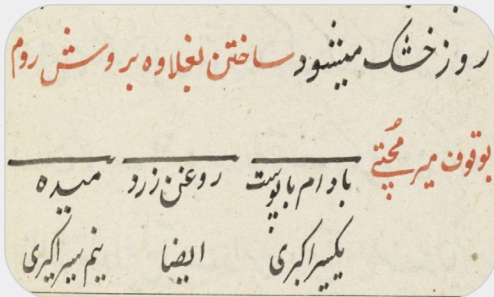 روز خشک میشود ساختن بغلاوه بروش روم
بوقوف میر مچتے بادام باپوست روغن زرد میده
یکسیر اکبری ایضا نیم سیر اکبری